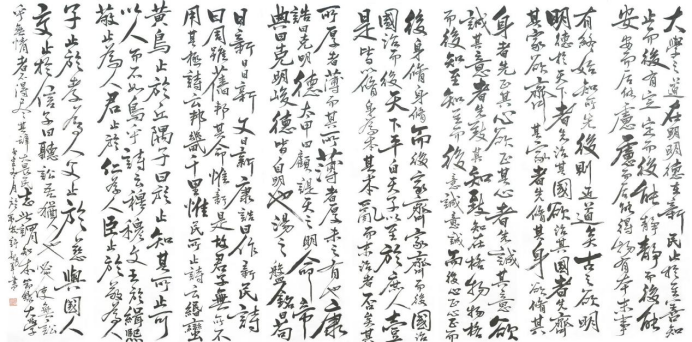 大學之道在明明德在新民止於至善知
止而後有定定而後能靜靜而後能
安安而后能慮慮而后能得物有本末事
有終始知所先後則近道矣古之欲明
明德於天下者先治其國欲治其國者先齊
其家欲齊其家者先脩其身欲脩其
身者先正其心欲正其心者先誠其意欲
誠其意者先致其知致知在格物物格
而後知至知至而后意誠意誠而後心正心正而
後身脩身脩而後家齊家齊而後國治
國治而後天下平自天子以至於庶人壹
是皆以脩身為本其本亂而末治者否矣其
所厚者薄而其所薄者厚未之有也康
誥曰克明德太甲曰顧諟天之明命帝
典曰克明峻德皆自明也湯之盤銘曰苟
日新日日新又日新康誥曰作新民詩
曰周雖舊邦其命惟新是故君子無所不
用其極詩云邦畿千里惟民所止詩云緡蠻
黃鳥止於丘隅子曰於止知其所止可
以人而不如鳥乎詩云穆穆文王於緝熙
敬止為人君止於仁為人臣止於敬為人
子止於孝為人父止於慈與國人
交止於信子曰聽訟吾猶人也必使無訟
乎無情者不得盡其辭大畏民志此謂知本節錄大學